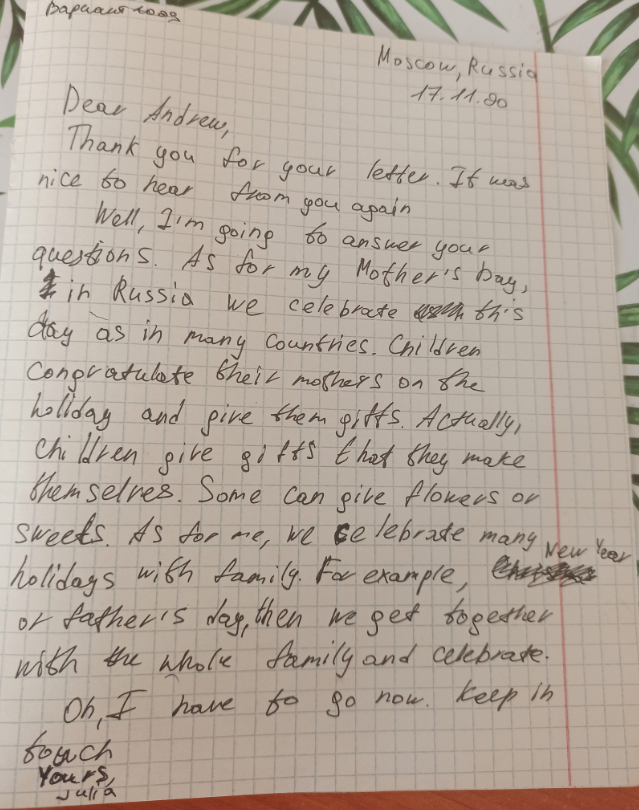 Вариант 1009
Moscow, Russia
17.11.20
Dear Andrew,
Thank you for your letter. It was
nice to hear from you again
Well, I'm going to answer your
questions. As for my Mother's Day,
in Russia we celebrate this
day as in many countries. Children
congratulate their mothers on the
holiday and give them gifts. Actually,
children give gifts that they make
themselves. Some can give flowers or
sweets. As for me, we celebrate many
holidays with family. For example, New Year
or father's day, then we get together
with the whole family and celebrate.
Oh, I have to go now. Keep in
touch
Yours,
Julia